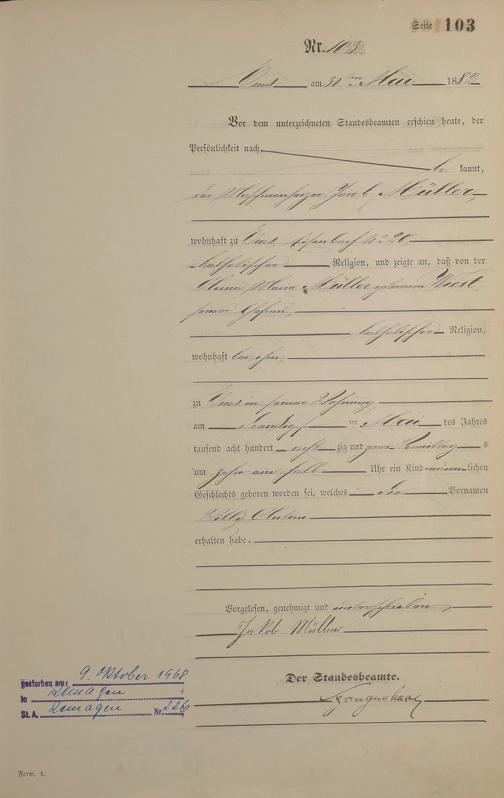 Seite 103
Nr. 103
Ems am 31ten Mai 1882
Vor dem unterzeichneten Standesbeamten erschien heute, der
Persönlichkeit nach
be kannt,
der Jacob Müller,
wohnhaft zu Ems, No 20,
katholischer Religion, und zeigte an, daß von der
Maria Müller geborenen
seiner Ehefrau,
katholischer Religion,
wohnhaft bei ihm,
zu Ems in seiner Wohnung,
am im Mai des Jahres
tausend acht hundert acht zig und zwei s
um zehn ein halb Uhr ein Kind männlichen
Geschlechts geboren worden sei, welches Vornamen
Willy Anton
erhalten habe.
Vorgelesen, genehmigt und unterschrieben
Jakob Müller
Der Standesbeamte.
gestorben am: 9. Oktober 1968
in Remagen
St.A. Remagen Nr. 226
Form. A.